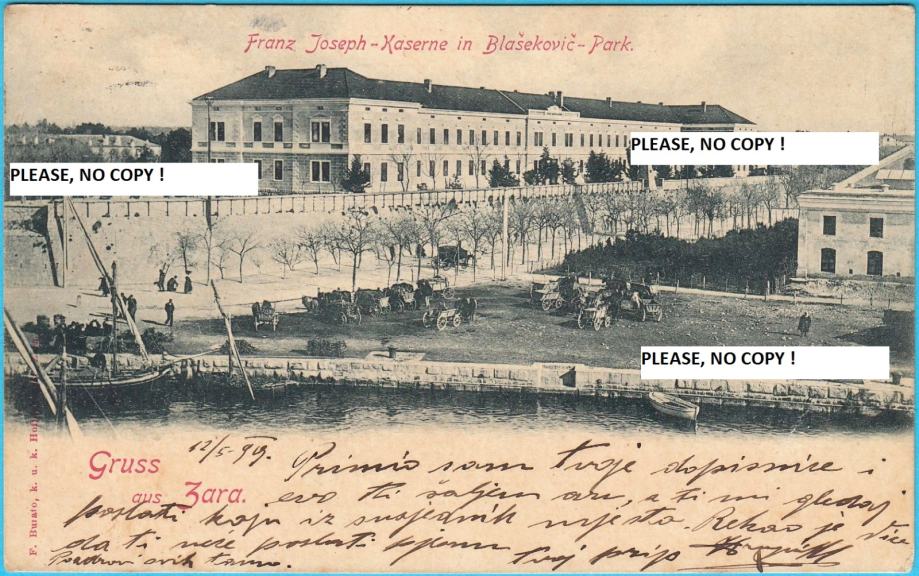 Franz Joseph-Kaserne in Blašekovič-Park.
PLEASE, NO COPY !
PLEASE, NO COPY !
PLEASE, NO COPY !
F. Burato, k. u. k. Hof
Gruss
aus Zara.
12/5 99.
Primio sam tvoje dopisnice i
evo ti šaljem ovu, a ti mi gledaj
poslati koju iz susjednih mjesta. Rekao je
da ti neće poslati
tvoj prijo
Pozdravi svih tamo.